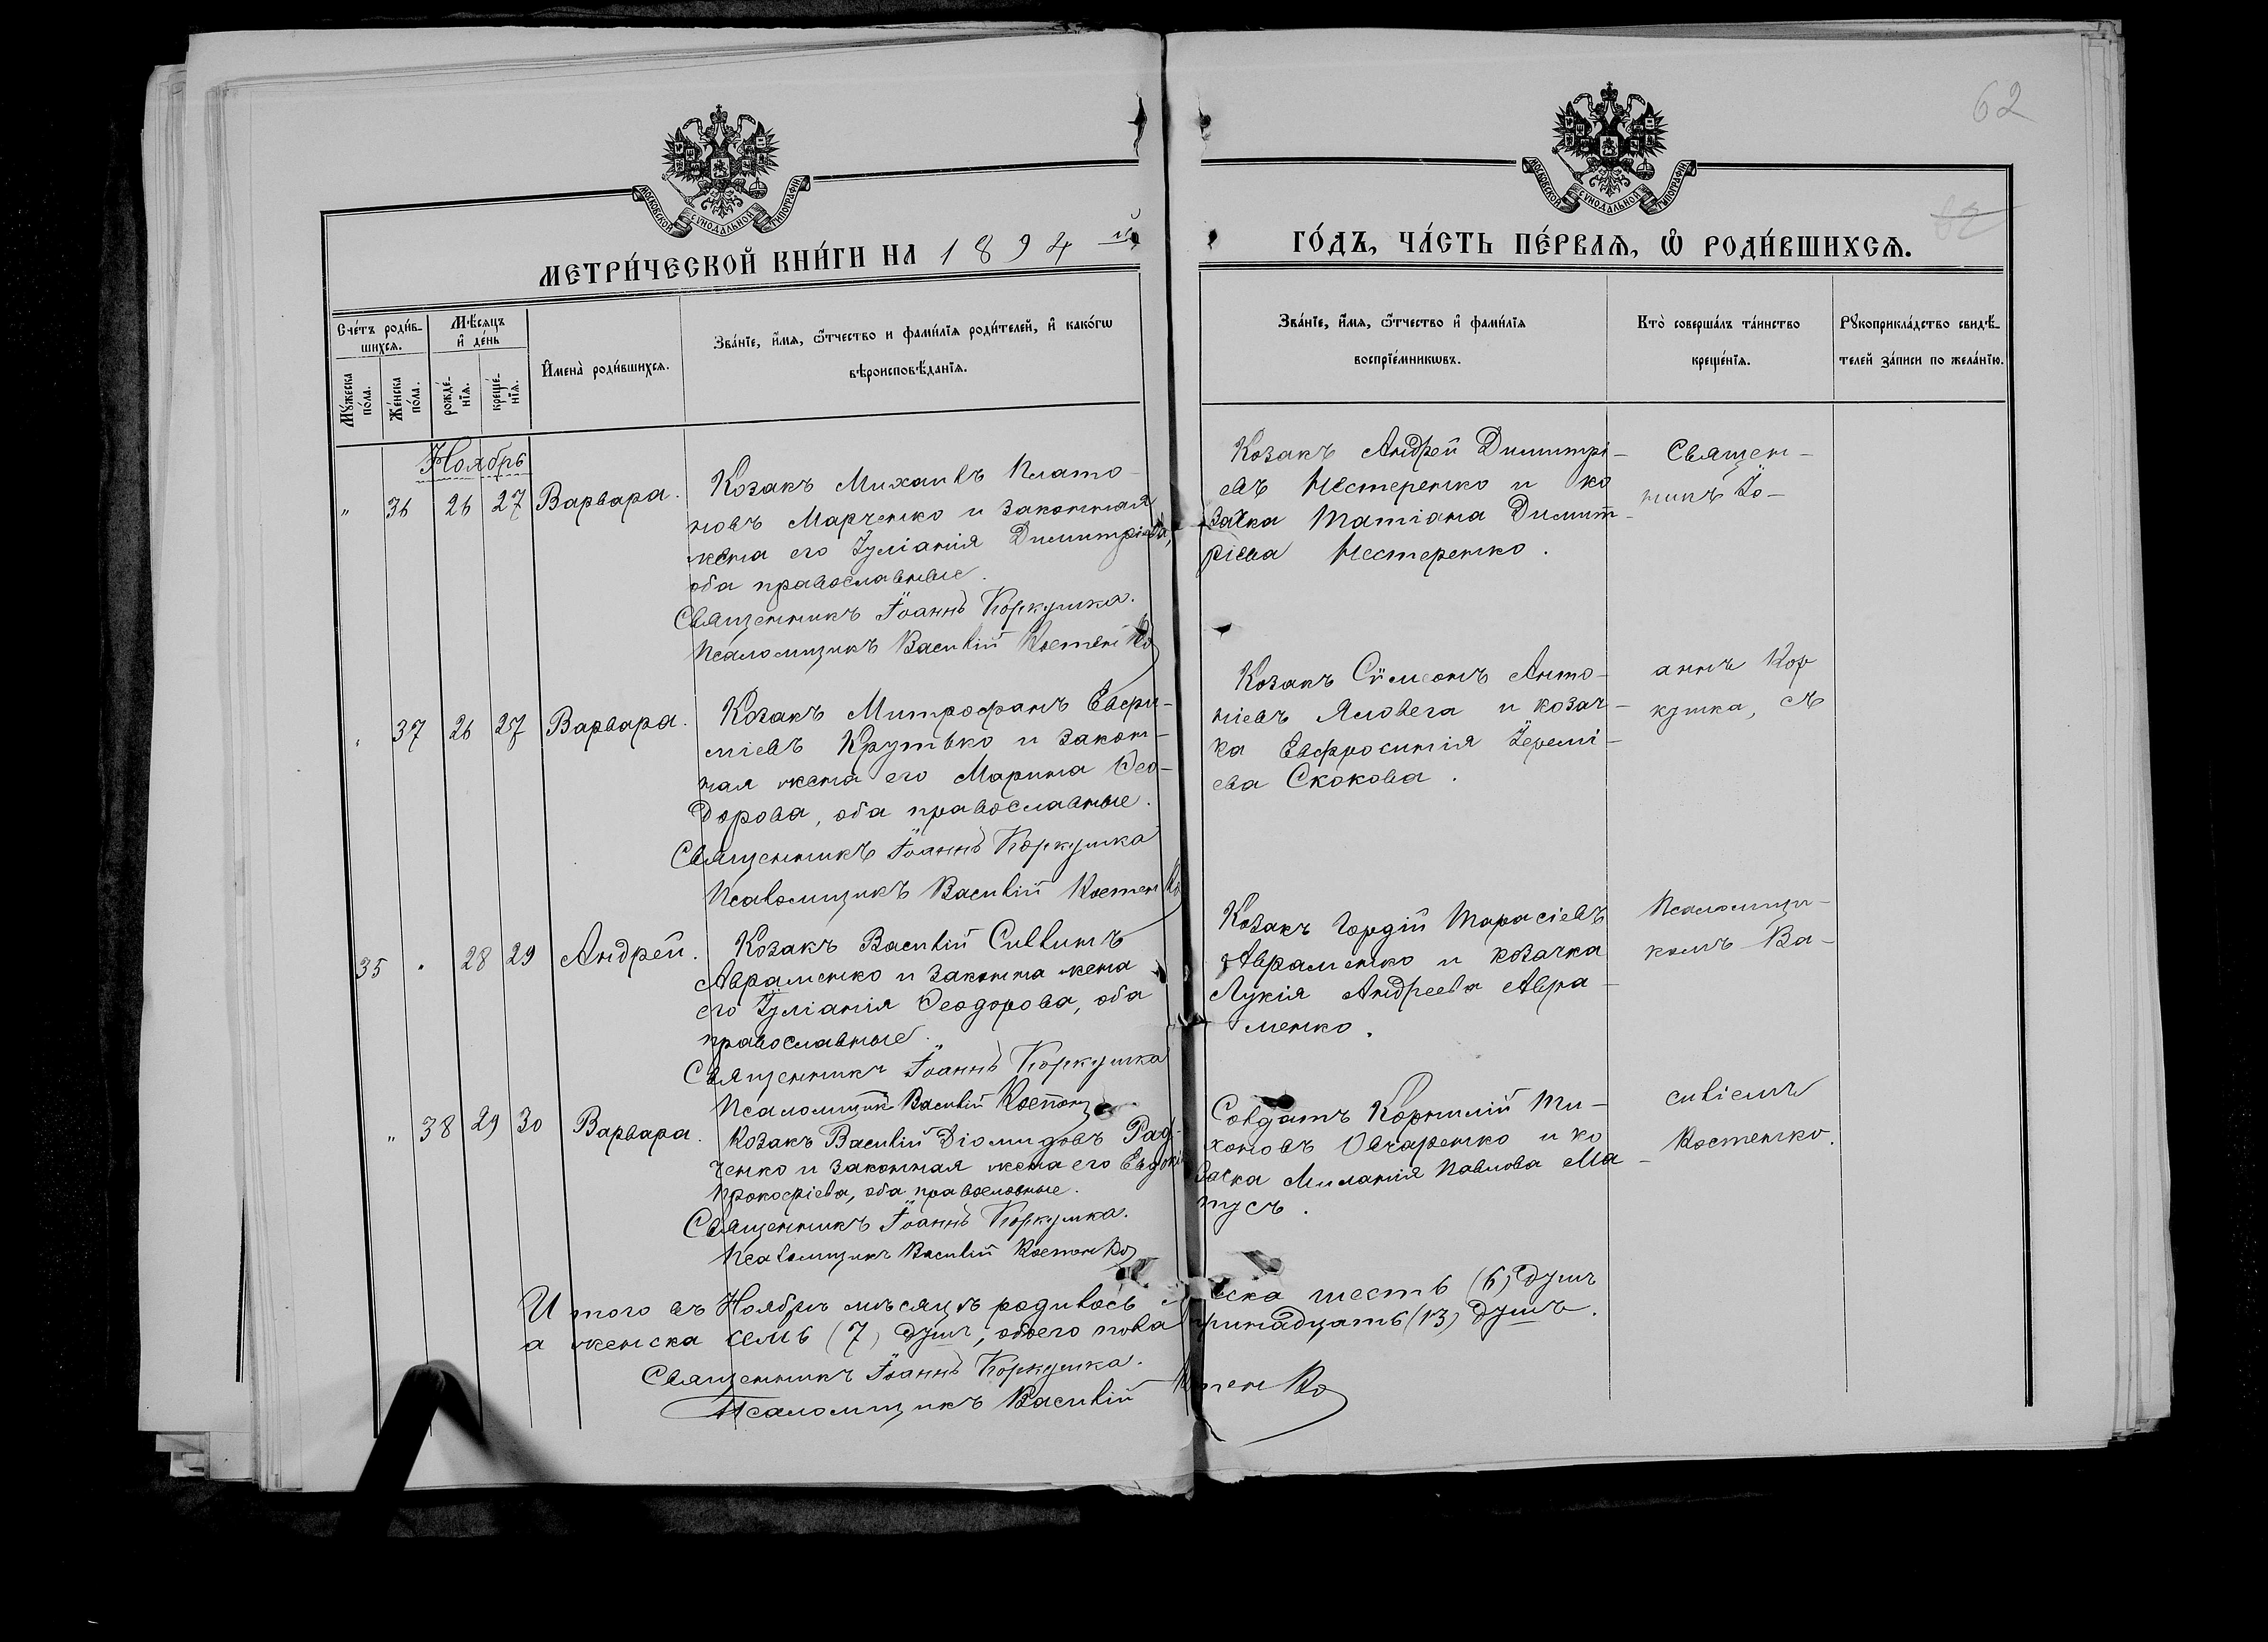 62
62
МОСКОВСКОЙ СѴНОДАЛЬНОЙ ТИПОГРАФІИ.
МОСКОВСКОЙ СѴНОДАЛЬНОЙ ТИПОГРАФІИ.
МЕТРИ́ЧЕСКОЙ КНИ́ГИ НА 1894 й
ГО́ДЪ, ЧА́СТЬ ПЕ́РВАѦ, Ѡ҆ РОДИ́ВШИХСѦ.
Сче́тъ роди́в-
шихсѧ.
Мꙋ́жеска по́ла.
Же́нска по́ла.
Мѣ́сѧцъ
и҆ де́нь
рожде́-нїѧ.
креще́-нїѧ.
И҆мена̀ роди́вшихсѧ.
Зва́нїе, и҆́мѧ, ѻ҆́тчество и фами́лїѧ роди́телей, и҆ како́гѡ
вѣроисповѣ́данїѧ.
Зва́нїе, и҆́мѧ, ѻ҆́тчество и҆ фами́лїѧ
воспрїе́мникѡвъ.
Кто̀ соверша́лъ та́инство
креще́нїѧ.
Рꙋкоприкла́дство свидѣ́-
телей за́писи по жела́нїю.
Ноябрь
" 36 26 27 Варвара.
Козакъ Михаилъ Плато-
новъ Марченко и законная
жена его Іуліанія Димитріева,
оба православные.
Священникъ Іоаннъ Коркушка.
Псаломщикъ Василій Костенко
Козакъ Андрей Димитрі-
евъ Нестеренко и ко
зачка Татіана Димит-
ріева Нестеренко.
Священ-
никъ Іо-
" 37 26 27 Варвара.
Козакъ Митрофанъ Евфи-
міевъ Крутько и закон-
ная жена его Марина Ѳео-
дорова, оба православные.
Священникъ Іоаннъ Коркушка
Псаломщикъ Василій Костенко
Козакъ Сѵмеонъ Анто-
ніевъ Яловега и козач-
ка Евфросинія Іеремі-
ева Скокова.
аннъ Кор
кушка, съ
35 " 28 29 Андрей.
Козакъ Василій Силинъ
Авраменко и законна жена
его Іуліанія Ѳеодорова, оба
православные.
Священникъ Іоаннъ Коркушка
Псаломщикъ Василій
Козакъ Гордій Тарасіевъ
Авраменко и козачка
Лукія Андреева Авра-
менко.
Псаломщи-
комъ Ва-
" 38 29 30 Варвара.
Козакъ Василій Діомидовъ Рад-
ченко и законная жена его
Прокофіева, оба православные.
Священникъ Іоаннъ Коркушка.
Псаломщикъ Василій Костенко
Солдатъ Корнилій Ти-
хоновъ Овчаренко и ко
зачка Миланія Павлова Ма-
тусъ.
силіемъ
Костенко.
Итого въ Ноябрѣ мѣсяцѣ родилось еска шесть (6) душъ
а женска семь (7) душъ, обоего пола тринадцать (13) душъ.
Священникъ Іоаннъ Коркушка.
Псаломщикъ Василій тенко